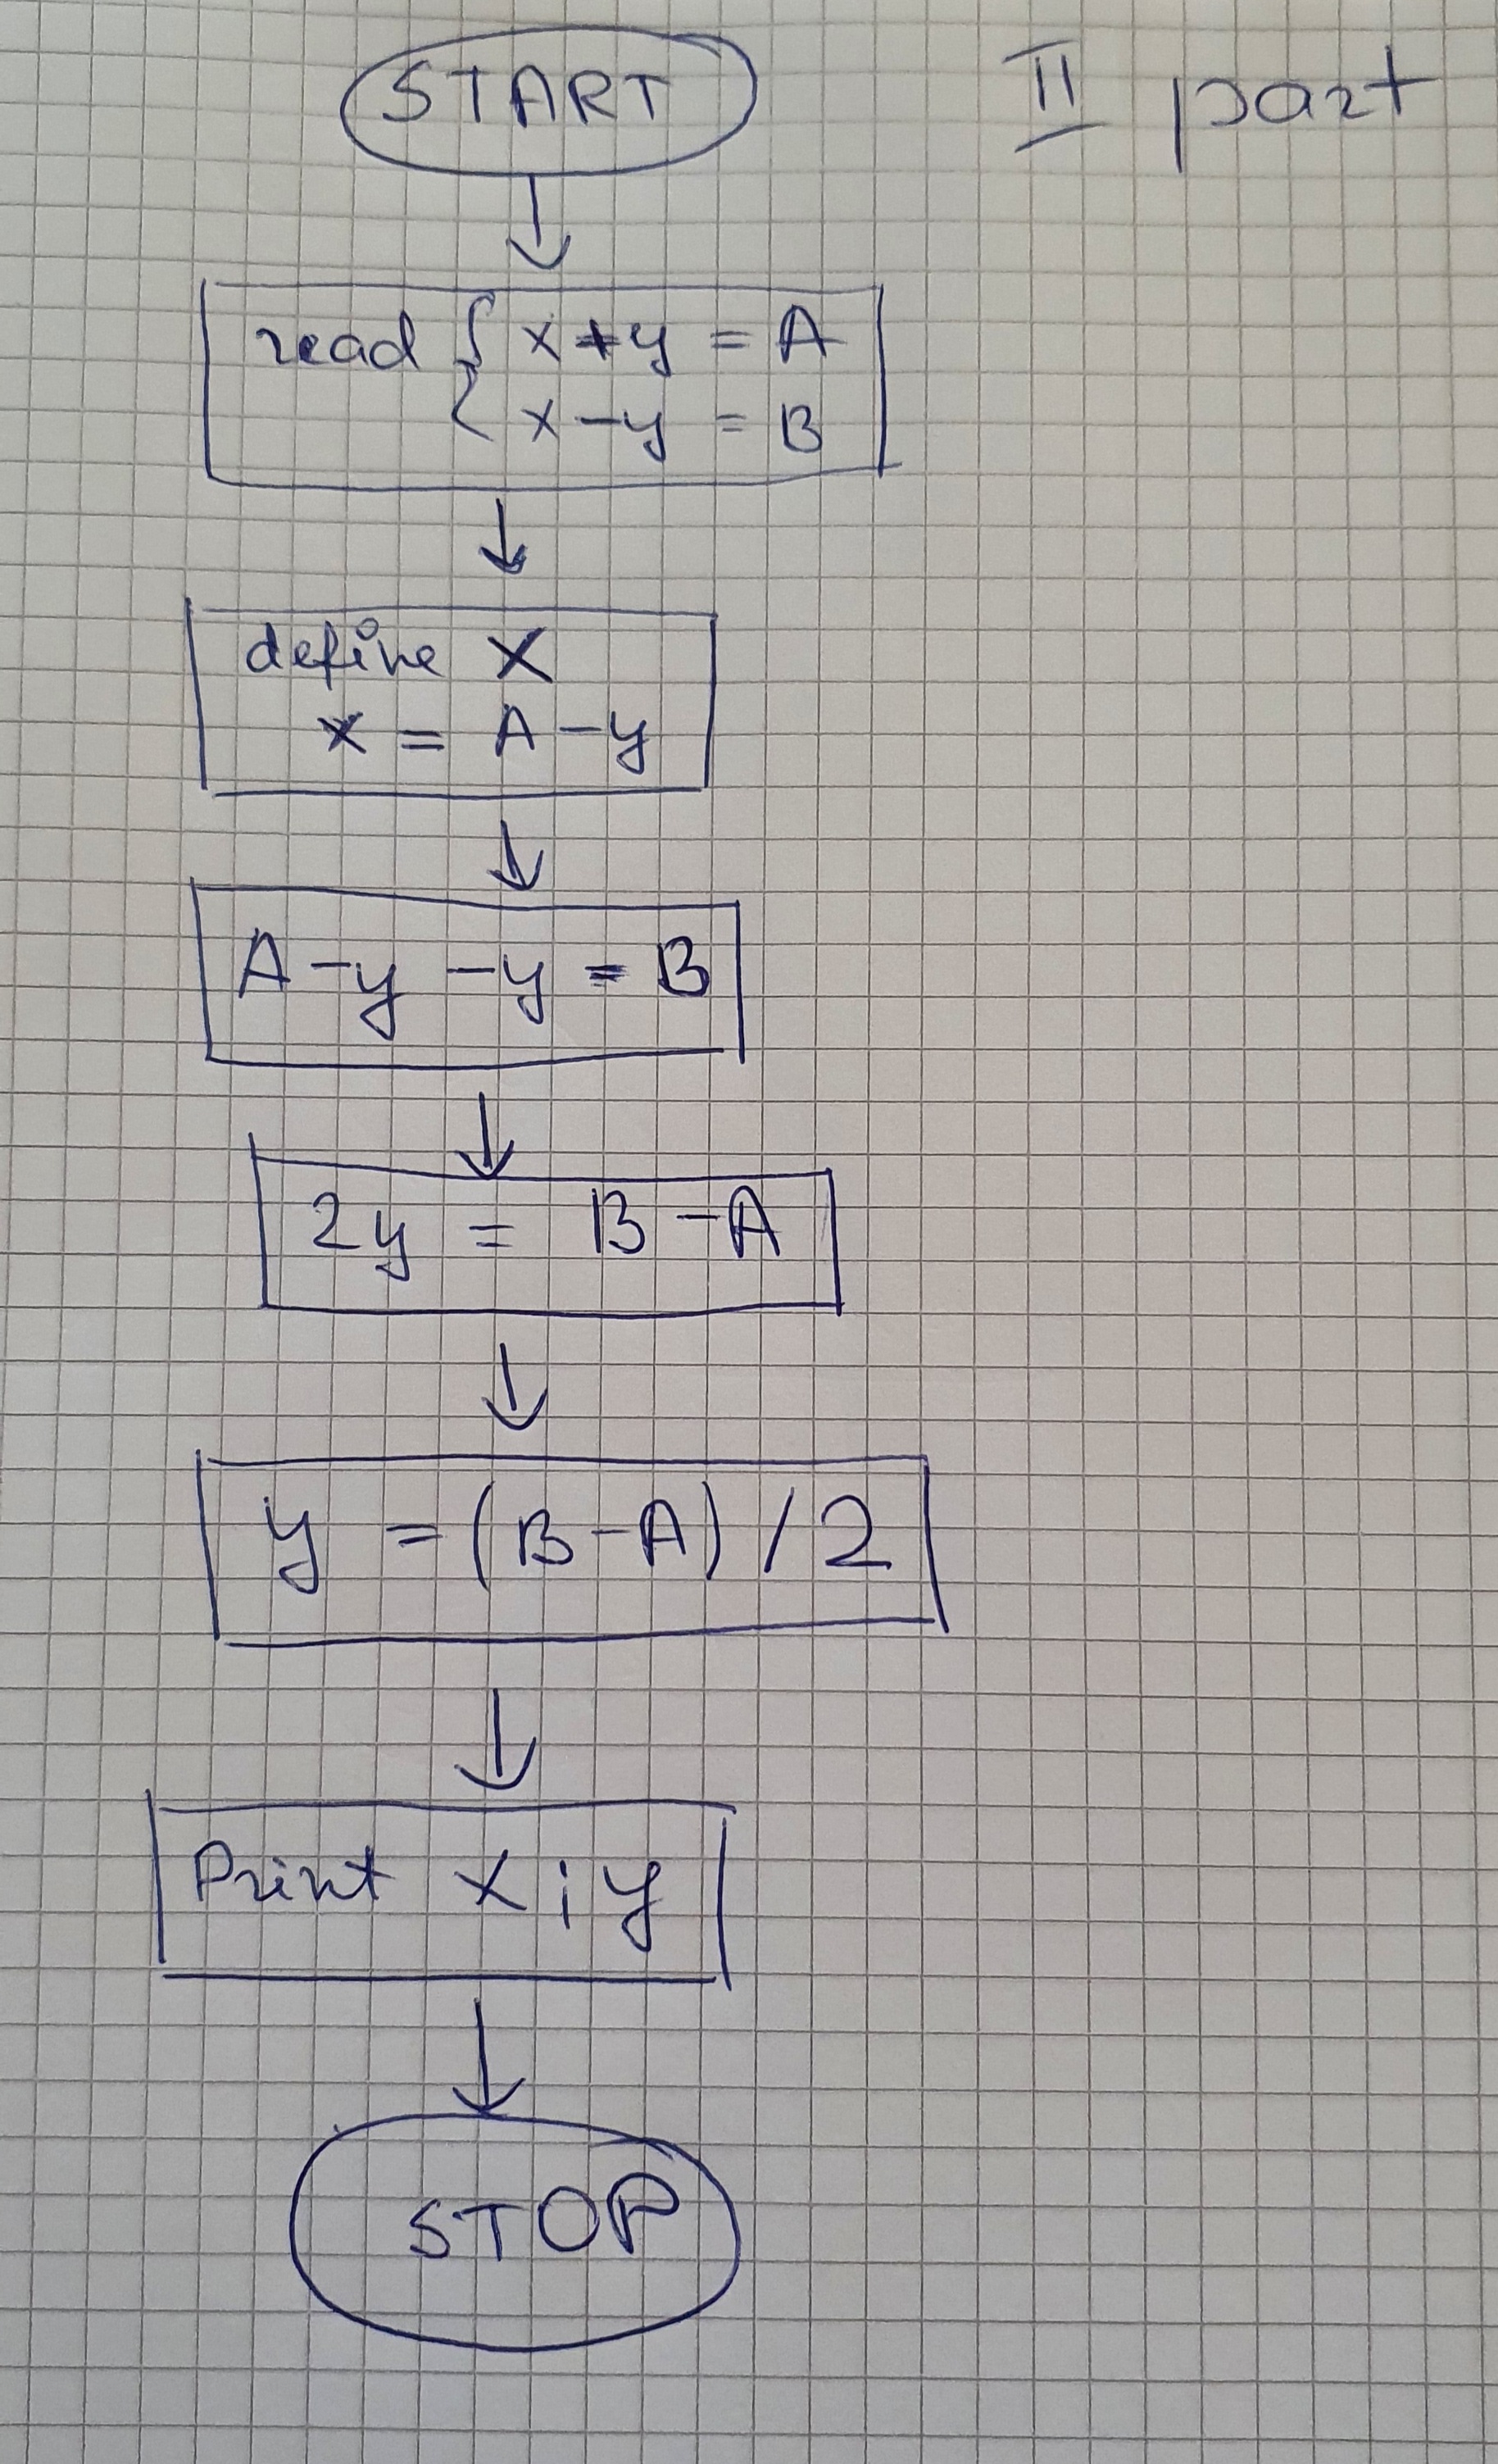 START
II part
read { x+y = A
x-y = B
define x
x = A-y
A-y -y = B
2y = B-A
y = (B-A) / 2
Print x ; y
STOP